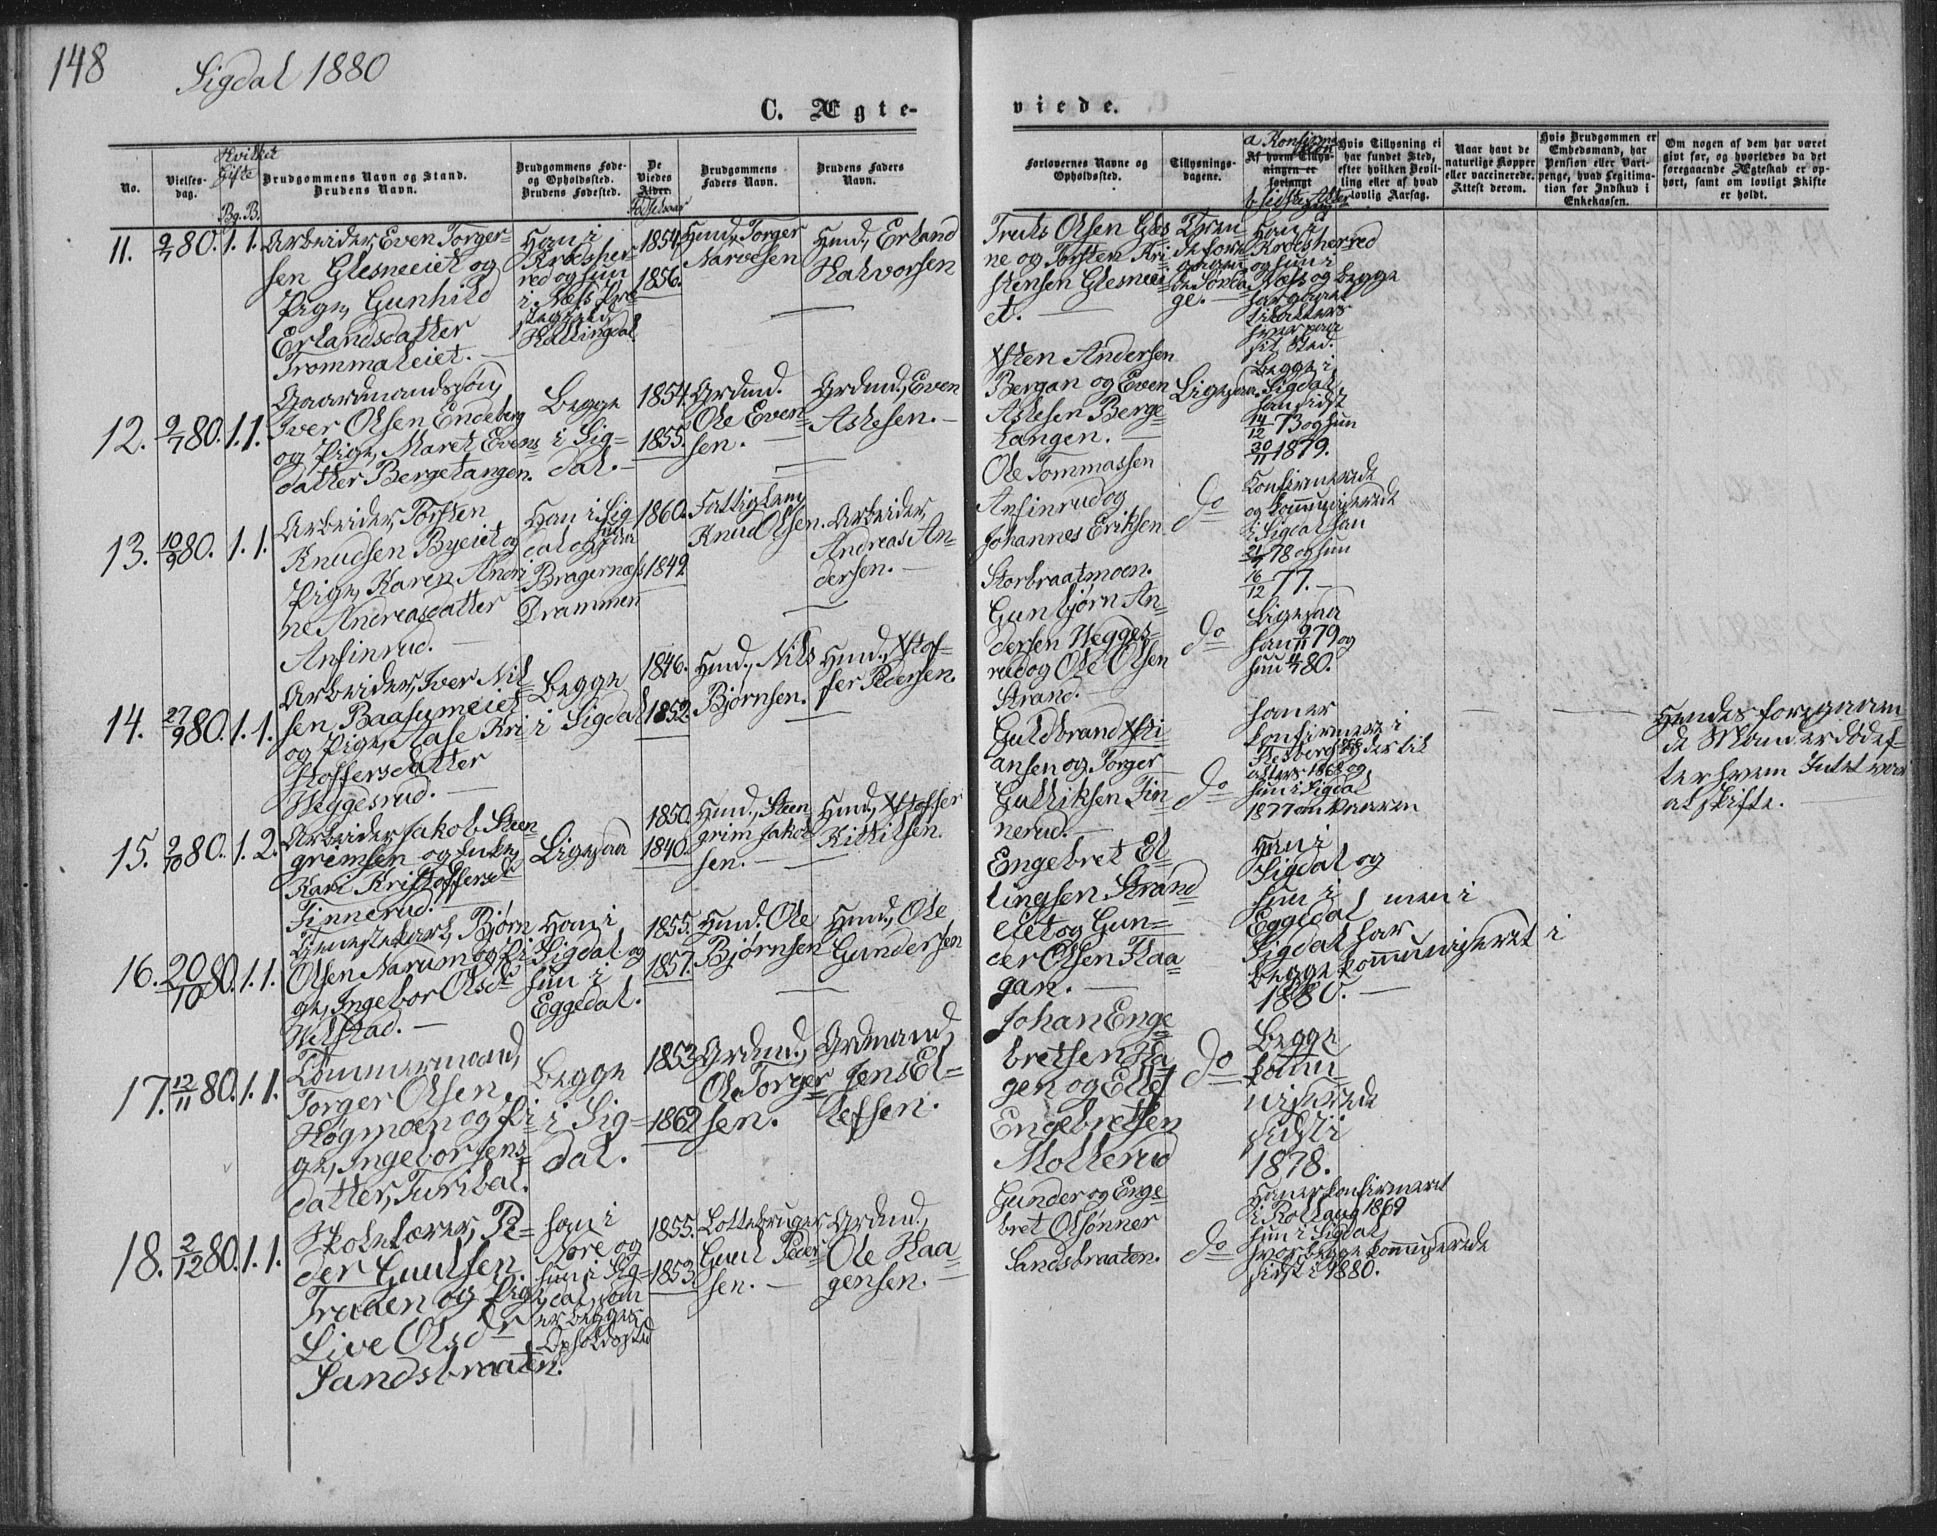 148
Sigdal 1880
C. Ægte-
viede.
No.
Vielses-
dag.
Hvilket
Gifte
Bg. B.
Brudgommens Navn og Stand.
Brudens Navn.
Brudgommens Føde-
og Opholdssted.
Brudens Fødested.
De
Viedes
Alder.
Fødselsaar
Brudgommens
Faders Navn.
Brudens Faders
Navn.
Forlovernes Navne og
Opholdssted.
Tillysnings-
dagene.
a. Konfirma
tion
Af hvem Tillys-
ningen er
forlangt
b sidste Alter
gang
Hvis Tillysning ei
har fundet Sted,
efter hvilken Bevil-
ling eller af hvad
lovlig Aarsag.
Naar havt de
naturlige Kopper
eller vaccinerede.
Attest derom.
Hvis Brudgommen er
Embedsmand, har
Pension eller Vart-
penge, hvad Legitima-
tion for Indskud i
Enkekassen.
Om nogen af dem har været
givt før, og hvorledes da det
foregaaende Ægteskab er op-
hørt, samt om lovligt Skifte
er holdt.
11. 9/7 80. 1. 1.
Arbeider Even Torger-
sen Glesneeiet og
Pige, Gunhild
Erlandsdatter
Trommaleiet. —
Han i
Krødsher-
red og hun
i Næss Præ
stegjeld,
Hallingdal
1854.
1856.
Hmd., Torger
Narvesen
Hmd., Erland
Halvorsen
Truls Olsen Gles
ne og Torsten Kri
stensen Glesneei
et. —
Tren
de fore
gaaen
de Sønda
ge. —
Han i
Krødsherred
og hun i
Næss og begge
har gaaet
til alters
hver paa
sit Sted.
12. 9/7 80. 1. 1.
Gaardmandssøn,
Iver Olsen Endeberg
og Pige, Maret Evens
datter Bergetangen.
Begge
i Sig=
dal. —
1854.
1855.
Grdmd.
Ole Even-
sen. —
Grdmd., Even
Aslesen. —
Sten Andersen
Bergan og Even
Aslesen Berge-
tangen. —
Ligesaa.
Begge i
Sigdal,
han sidst
14/12 73 og hun
30/11 1879.
13. 10/9 80. 1. 1.
Arbeider Torsten
Knudsen Byeiet og
Pige, Karen Andri
ne Andreasdatter
Anfinrud. —
Han i Sig
dal og hun
paa
Bragernæss
Drammen
1860.
1849
Fattiglem
Knud Olsen.
Arbeider,
Andreas An-
dersen. —
Ole Tommassen
Anfinrud og
Johannes Eriksen
Storbraatmoen.
Do
Konfirmerede
og kommunicerede
i Sigdal han
21/4 78 og hun
16/12 77. —
14. 27/9 80. 1. 1.
Arbeider, Iver Nil-
sen Baasumeiet
og Pige, Aase Kri
stoffersdatter
Heggesrud. —
Begge
i Sigdal
1846.
1852.
Hmd., Nils
Bjørnsen.
Hmd., Xstof-
fer Pedersen.
Gunbjørn An-
dersen Hegges-
rud og Ole Olsen
Strand. —
Do
Ligesaa
han 9/11 79 og
hun 4/7 80.
15. 2/10 80. 1. 2.
Arbeider Jakob Steen-
grimsen og Enke,
Kari Kristoffersd
Finnerud. —
Ligesaa
1850.
1840.
Hmd., Steen
grim Jakob
sen. —
Hmd., Xstoffer
Kittilsen.
Guldbrand Xsti-
ansen og Torger
Gulliksen Fin
nerud. —
Do
Han er
konfirmeret i
hun i Sigdal
1877
Hendes foregaaen-
de Mand er død ef-
ter hvem Intet var
at skifte. —
16. 20/10 80. 1. 1.
Tjenestekarl, Bjørn
Olsen Narum og Pi
ge, Ingebor Olsd
Welstad. —
Han i
Sigdal og
hun i
Eggedal.
1855.
1857.
Hmd. Ole
Bjørnsen
Hmd., Ole
Gundersen
Engebret El-
lingsen Strand
eiet og Gun-
der Olsen Haa-
gan. —
Han i
Sigdal og
hun i
Eggedal men i
Sigdal har
begge kommuniseret i
1880. —
17. 12/11 80. 1. 1.
Tømmermand,
Torger Olsen
Høgmoen og Pi-
ge, Ingebor Jens-
datter, Turibal.
Begge
i Sig-
dal.
1853
1862
Grdmd.,
Ole Torger
sen.
Grdmand,
Jens El-
lefsen.
Johan Enge
bretsen Ha
gen og Ellef
Engebretsen
Mollerud
Do
Begge
kommu-
niserede
sidst i
1878.
18. 2/12 80. 1. 1.
Skolelærer, Pe-
der Guulsen
Traaen og Pige,
Live Olsdr
Sandsbraaten.
han i
Nore og
hun i Sig-
dal, som
er begges
Opholdssted
1855.
1853.
Lottebruger
Guul Peder-
sen. —
Grdmd.,
Ole Haa
gensen. —
Gunder og Enge-
bret Olsønner
Sandsbraaten.
Do
Han er konfirmeret
i Rollaug 1869
hun i Sigdal
hvor begge kommuniserede
sidst i 1880.